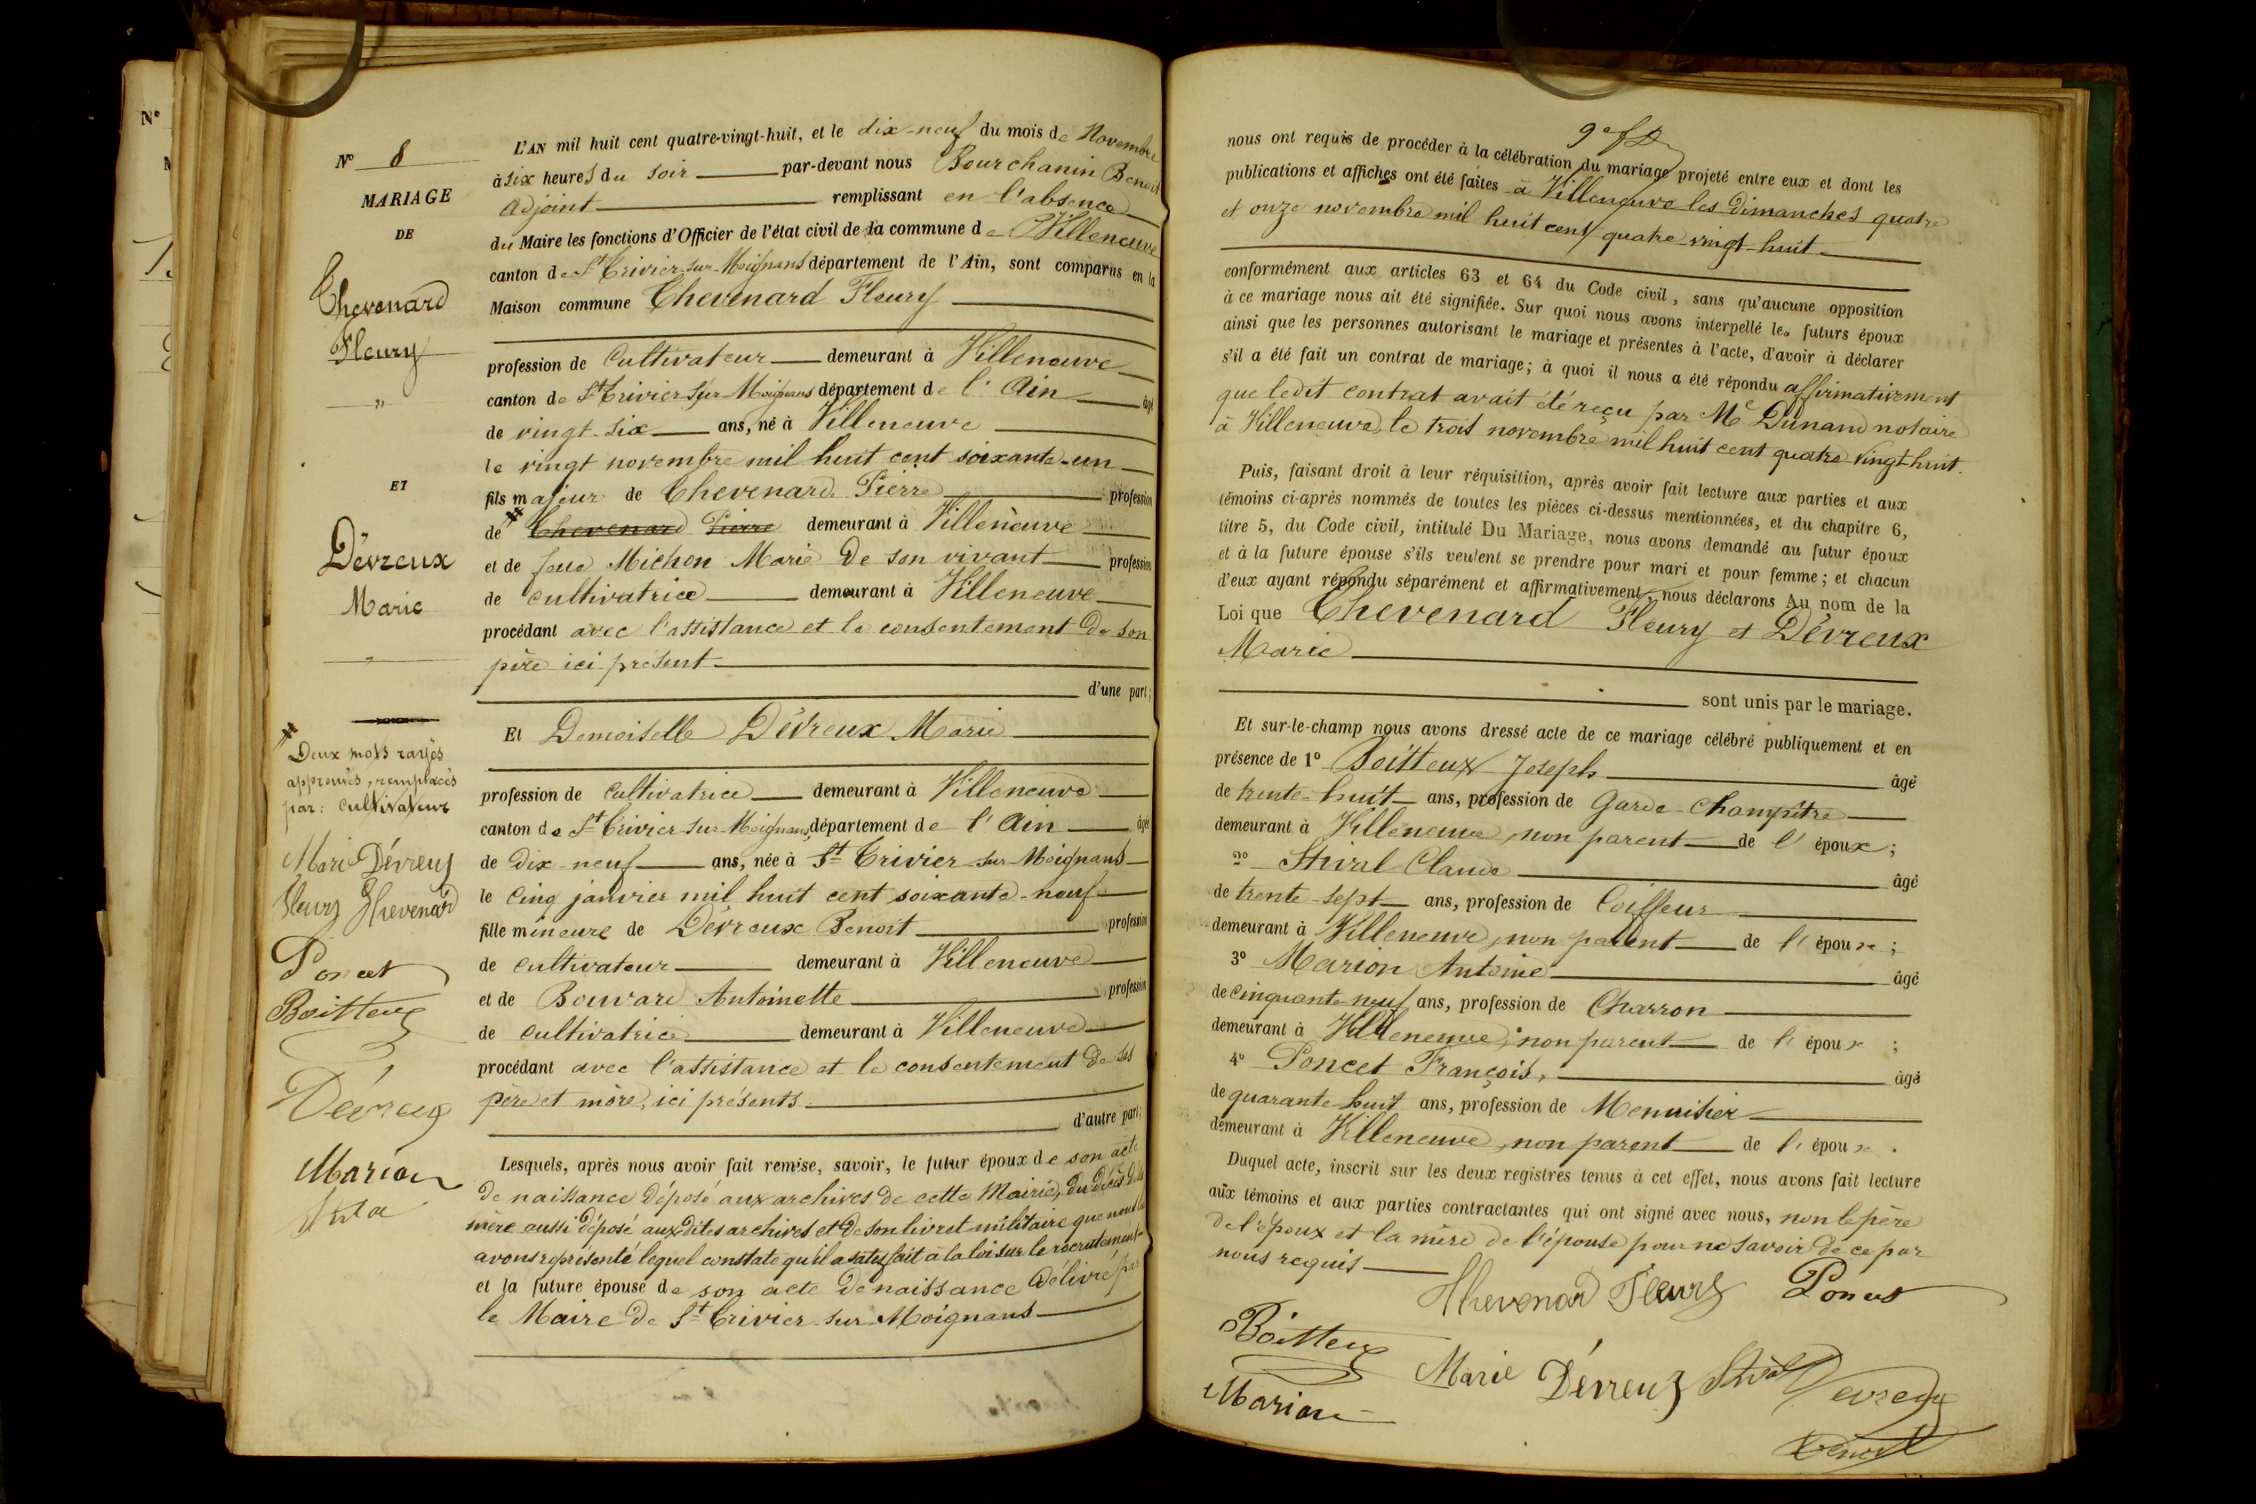 N°
N° 8
MARIAGE
DE
Chevenard
Fleury
"
ET
Dévreux
Marie
"
Deux mots rayés
approuvés, remplacés
par: cultivateur
Marie Dévreux
Fleury Chevenard
Poncet
Boitteux
Dévreux
Marion
L'AN mil huit cent quatre-vingt-huit, et le dix-neuf du mois de Novembre
à six heures du soir par-devant nous Bourchanin Benoit
adjoint remplissant en l'absence
du Maire les fonctions d'Officier de l'état civil de la commune de Villeneuve
canton de St Trivier-sur-Moignans département de l'Ain, sont comparus en la
Maison commune Chevenard Fleury
profession de Cultivateur demeurant à Villeneuve
canton de St Trivier sur Moignans département de l'Ain âgé
de vingt-six ans, né à Villeneuve
le vingt novembre mil huit cent soixante-un
fils majeur de Chevenard Pierre profession
de # Chevenard Pierre demeurant à Villeneuve
et de feue Michon Marie de son vivant profession
de cultivatrice demeurant à Villeneuve
procédant avec l'assistance et le consentement de son
père ici présent
d'une part;
Et Demoiselle Dévreux Marie
profession de Cultivatrice demeurant à Villeneuve
canton de St Trivier-sur-Moignans, département de l'Ain âgée
de dix neuf ans, née à St Trivier sur Moignans
le cinq janvier mil huit cent soixante-neuf
fille mineure de Dévreux Benoit profession
de cultivateur demeurant à Villeneuve
et de Bouvard Antoinette profession
de cultivatrice demeurant à Villeneuve
procédant avec l'assistance et le consentement de ses
père et mère, ici présents
d'autre part;
Lesquels, après nous avoir fait remise, savoir, le futur époux de son acte
de naissance déposé aux archives de cette Mairie, du décès de sa
mère aussi déposé aux dites archives et de son livret militaire que nous
avons représenté lequel constate qu'il a satisfait à la loi sur le recrutement
et la future épouse de son acte de naissance délivré par
le Maire de St Trivier-sur-Moignans
nous ont requis de procéder à la célébration du mariage projeté entre eux et dont les
publications et affiches ont été faites à Villeneuve les dimanches quatre
et onze novembre mil huit cent quatre-vingt-huit
conformément aux articles 63 et 64 du Code civil, sans qu'aucune opposition
à ce mariage nous ait été signifiée. Sur quoi nous avons interpellé les futurs époux
ainsi que les personnes autorisant le mariage et présentes à l'acte, d'avoir à déclarer
s'il a été fait un contrat de mariage; à quoi il nous a été répondu affirmativement
que ledit contrat avait été reçu par Me Dunand notaire
à Villeneuve, le trois novembre mil huit cent quatre vingt-huit.
Puis, faisant droit à leur réquisition, après avoir fait lecture aux parties et aux
témoins ci-après nommés de toutes les pièces ci-dessus mentionnées, et du chapitre 6,
titre 5, du Code civil, intitulé Du Mariage, nous avons demandé au futur époux
et à la future épouse s'ils veulent se prendre pour mari et pour femme; et chacun
d'eux ayant répondu séparément et affirmativement, nous déclarons Au nom de la
Loi que Chevenard Fleury et Dévreux
Marie
sont unis par le mariage.
Et sur-le-champ nous avons dressé acte de ce mariage célébré publiquement et en
présence de 1° Boitteux Joseph âgé
de trente-huit ans, profession de Garde-Champêtre
demeurant à Villeneuve, non parent de l'époux;
2° Stival Claude âgé
de trente-sept ans, profession de Coiffeur
demeurant à Villeneuve, non parent de l'époux;
3° Marion Antoine âgé
de cinquante-neuf ans, profession de Charron
demeurant à Villeneuve, non parent de l'époux;
4° Poncet François, âgé
de quarante-huit ans, profession de Menuisier
demeurant à Villeneuve, non parent de l'époux.
Duquel acte, inscrit sur les deux registres tenus à cet effet, nous avons fait lecture
aux témoins et aux parties contractantes qui ont signé avec nous, non le père
de l'époux et la mère de l'épouse pour ne savoir de ce par
nous requis
Chevenard Fleury Poncet
Boitteux
Marie Dévreux Stival Devreux
Marion